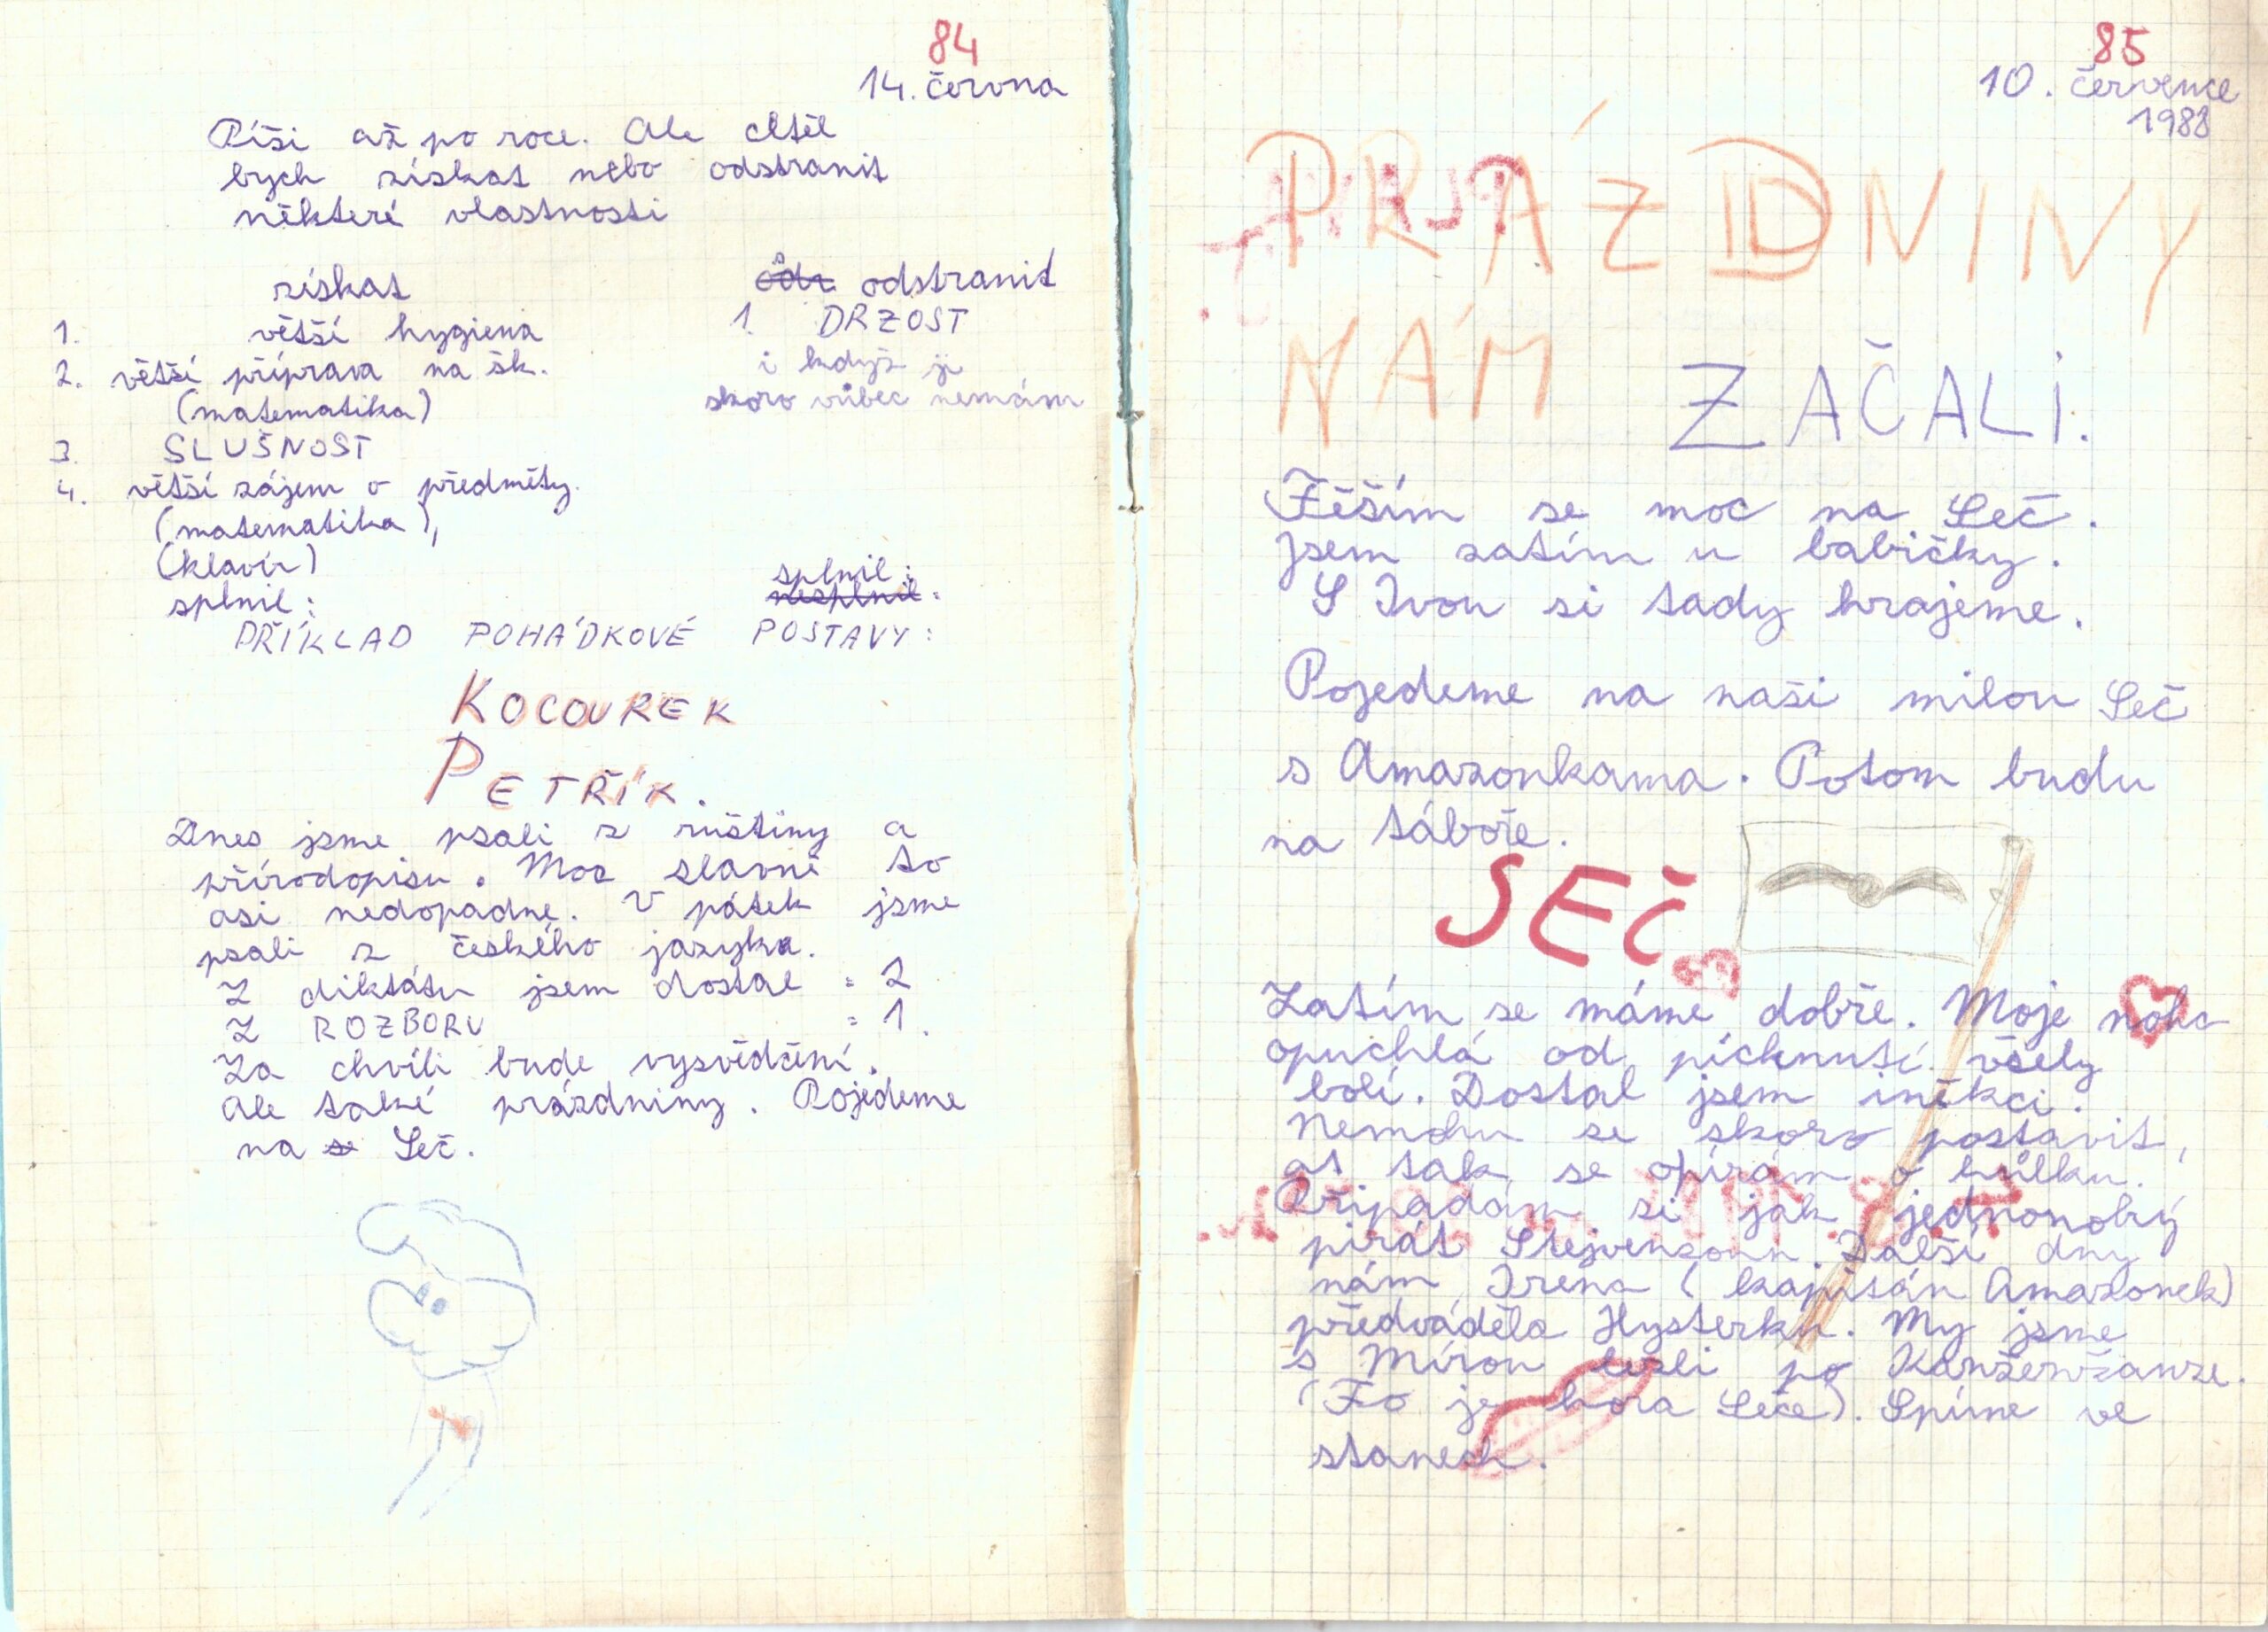 84
14. června
Píši až po roce. Ale chtěl
bych získat nebo odstranit
některé vlastnosti
získat
1. větší hygiena
2. větší příprava na šk.
(matematika)
3. SLUŠNOST
4. větší zájem o předměty.
(matematika),
(klavír)
splnil:
odstranit
1 DRZOST
i když ji
skoro vůbec nemám
splnil:
nesplnil:
PŘÍKLAD POHÁDKOVÉ POSTAVY:
KOCOUREK
PETŘÍK.
Dnes jsme psali z ruštiny a
přírodopisu. Moc slavně to
asi nedopadne. V pátek jsme
psali z českého jazyka.
Z diktátu jsem dostal = 2
Z ROZBORU = 1.
Za chvíli bude vysvědčení.
Ale také prázdniny. Pojedeme
na se Seč.
85
10. července
1988
PRÁZDNINY
NÁM ZAČALI.
Těším se moc na Seč.
Jsem zatím u babičky.
S Ivou si tady hrajeme.
Pojedeme na naši milou Seč
s Amazonkama. Potom budu
na táboře.
SEČ
Zatím se máme dobře. Moje noha
opuchlá od píchnutí včely
bolí. Dostal jsem iněkci.
Nemohu se skoro postavit,
at tak se opírám o hůlku.
Připadám si jak jednonohý
pirát Stejvensonn. Další dny
nám Irena (kapitán Amazonek)
předváděla Hysterku. My jsme
s Mírou lezli po Kanženžanze.
(To je hora Seče). Spíme ve
stanech.